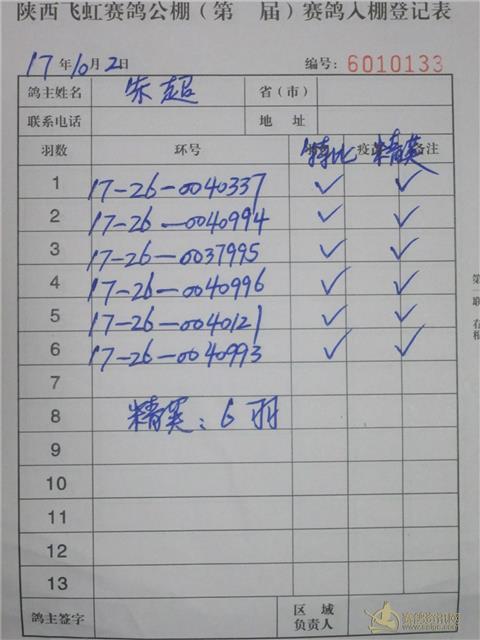 陕西飞虹赛鸽公棚（第 届）赛鸽入棚登记表
17年10月2日 编号：6010133
鸽主姓名 朱超 省（市）
联系电话 地 址
羽数 环号 特比 精英 备注
1 17-26-0040337 ✓ ✓
2 17-26-0040994 ✓ ✓
3 17-26-0037995 ✓ ✓
4 17-26-0040996 ✓ ✓
5 17-26-0040121 ✓ ✓
6 17-26-0040993 ✓ ✓
7
8 精英：6羽
9
10
11
12
13
鸽主签字 区域负责人
第一联
赛鸽资讯网